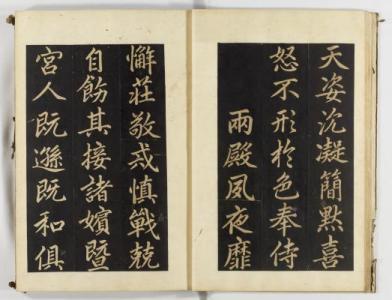 天姿沉凝簡默喜
怒不形於色奉侍
兩殿夙夜靡
懈莊敬戒慎戰兢
自飭其接諸嬪暨
宮人既遜既和俱